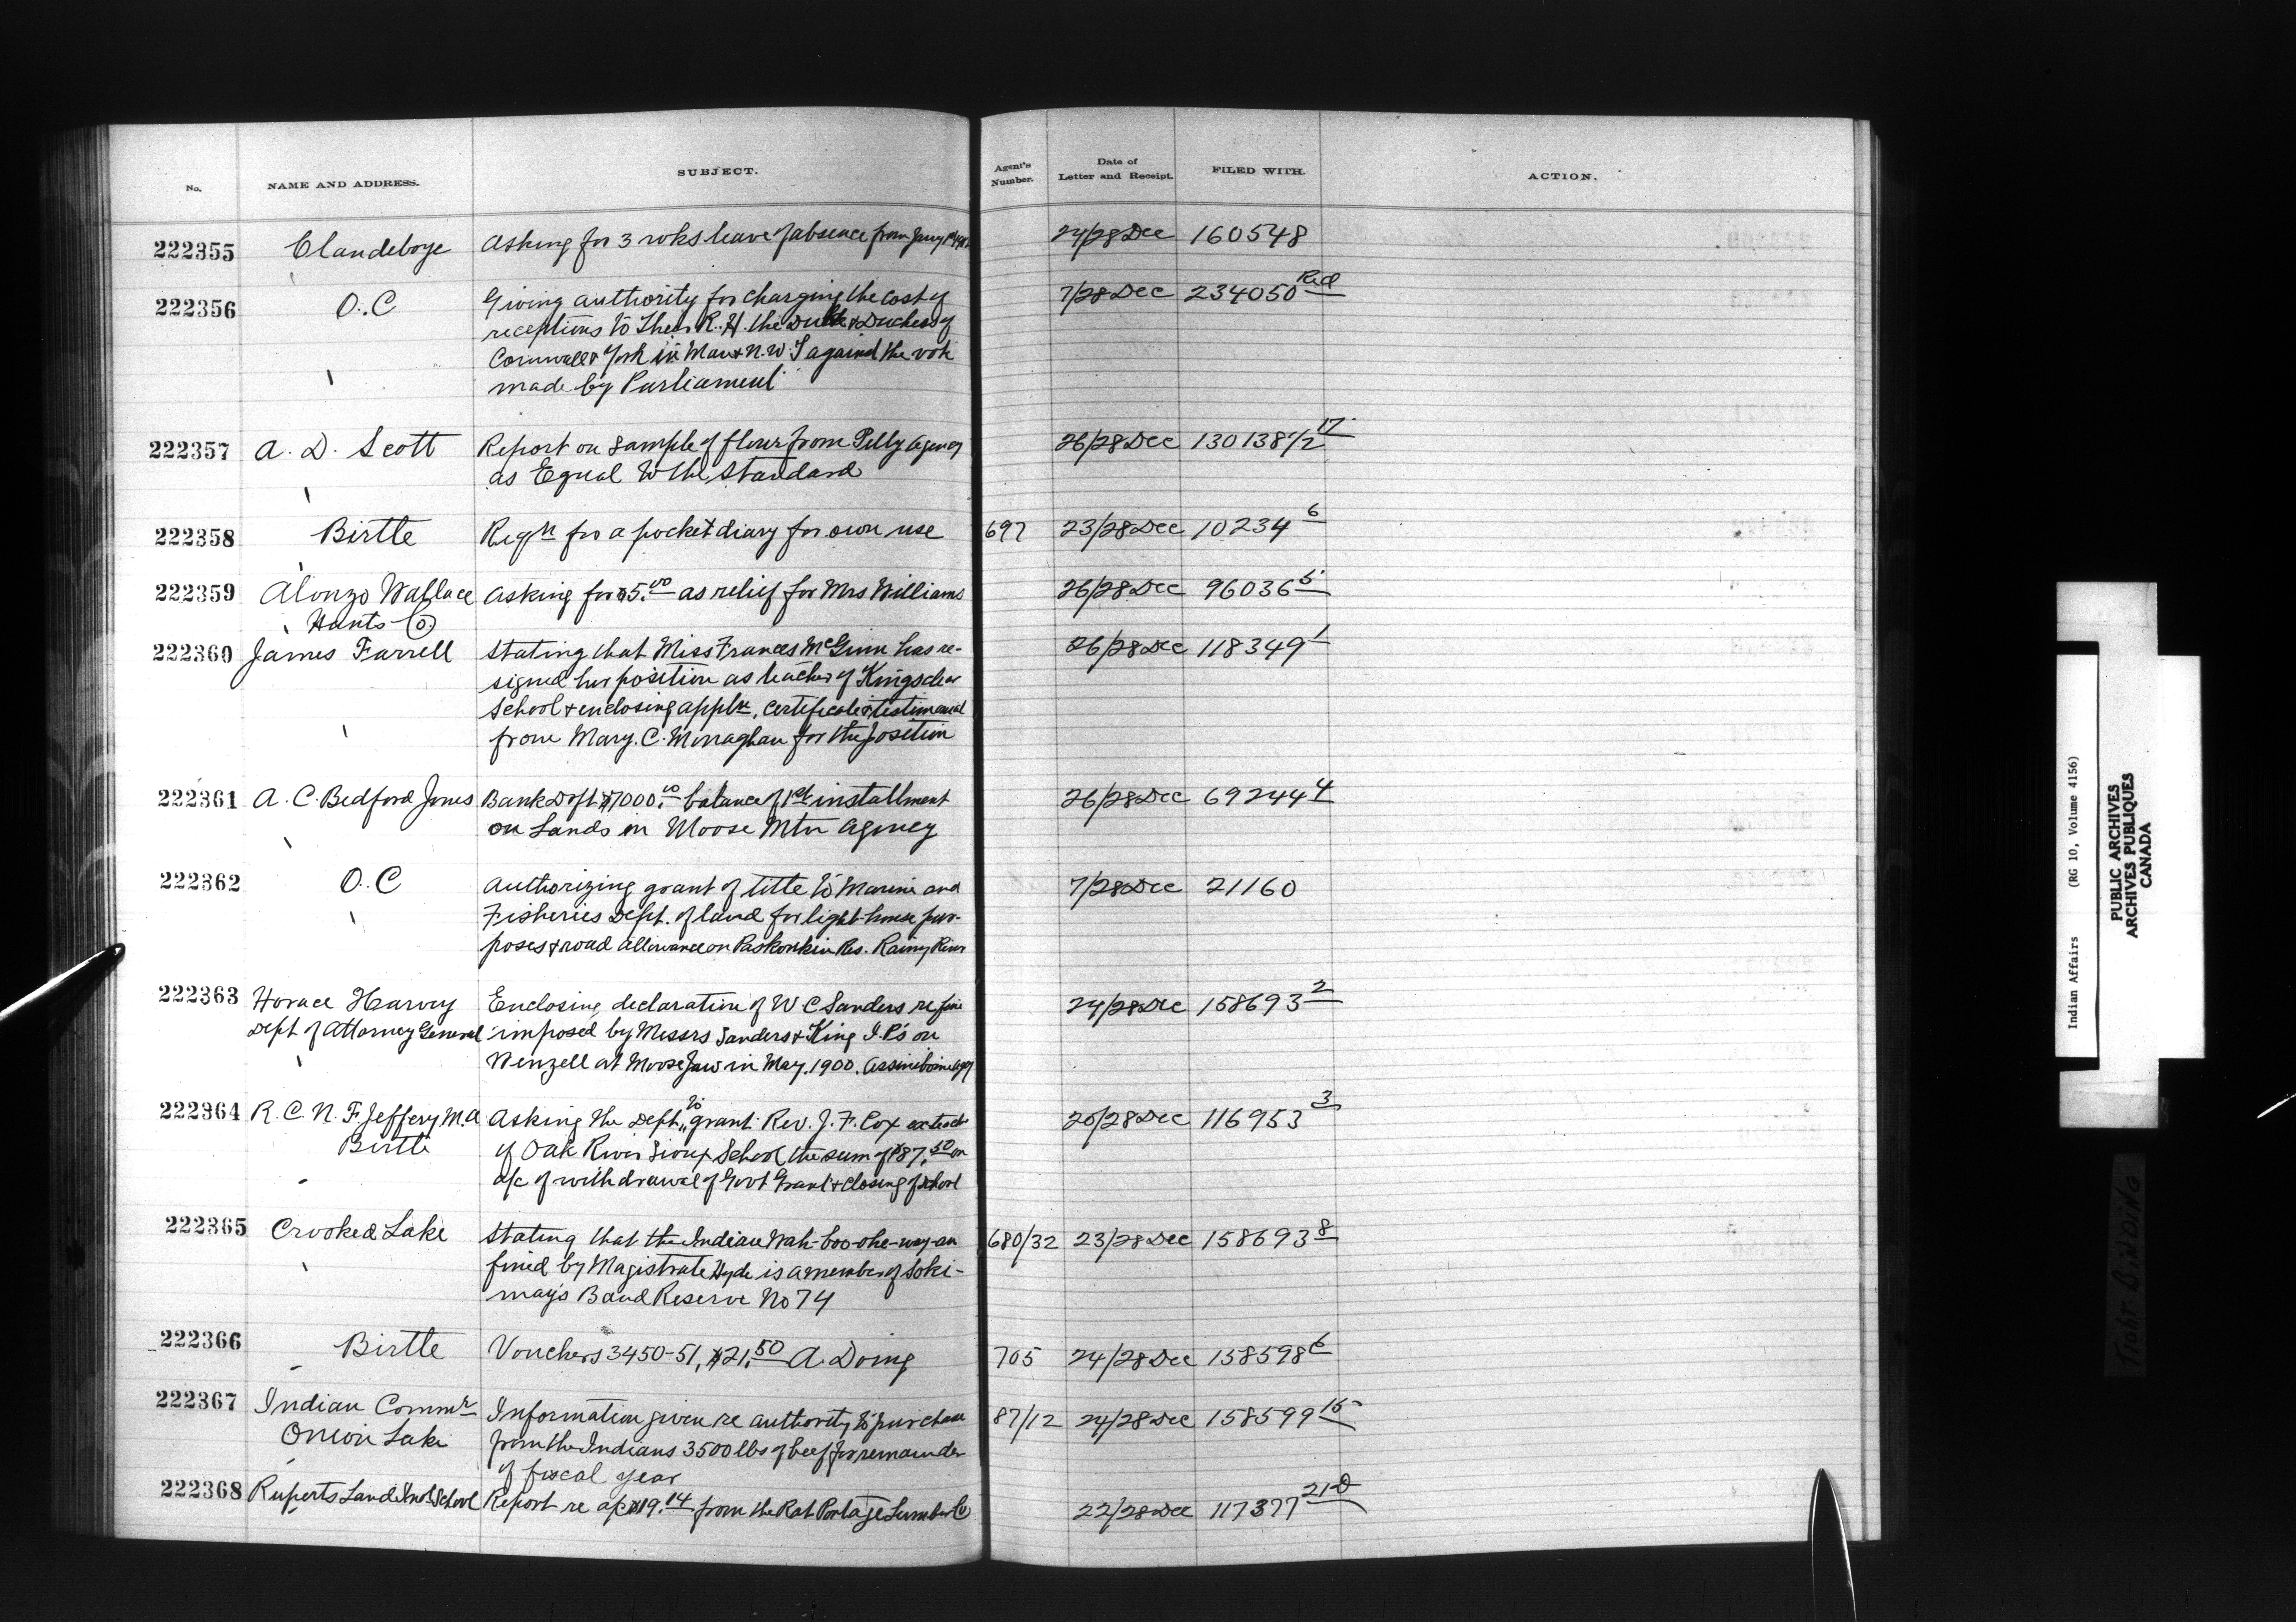 No. NAME AND ADDRESS. SUBJECT. Agent's Number. Date of Letter and Receipt. FILED WITH. ACTION.
222355 Clandeboye Asking for 3 wks leave of absence from Jany 24/28 Dec 160548
222356 O.C Giving authority for charging the cost of 7/28 Dec 234050 Red
receptions to Their R.H. the Duke & Duchess of
Cornwall & York in Man & N.W.T against the vote
made by Parliament
222357 A. D. Scott Report on sample of flour from Pelly Agency 26/28 Dec 130138 1/2 17
as Equal to the Standard
222358 Birtle Reqn for a pocket diary for own use 697 23/28 Dec 10234 6
222359 Alonzo Wallace Asking for $5.00 as relief for Mrs Williams 26/28 Dec 96036 5
Hants Co.
222360 James Farrell Stating that Miss Frances McGinn has re- 26/28 Dec 118349 1
signed her position as teacher of Kingsclear
School & enclosing appln, certificate & testimonial
from Mary. C. Monaghan for the position
222361 A. C. Bedford Jones Bank Dft $7000.00 balance of 1st installment 26/28 Dec 69244 4
on Lands in Moose Mtn Agency
222362 O.C Authorizing grant of title to Marine and 7/28 Dec 21160
Fisheries Dept. of land for light-house pur-
poses & road allowance on Res. Rainy River
222363 Horace Harvey Enclosing declaration of W C Sanders re fine 24/28 Dec 158693 2
Dept of Attorney General imposed by Messrs Sanders & King J.P's on
Wenzell at Moose Jaw in May. 1900. Assiniboine Agcy
222364 R. C. N. F. Jeffery M.A Asking the Dept to grant Rev. J. F. Cox ex teach 20/28 Dec 116953 3
Birtle of Oak River Sioux School the sum of $87.50 on
a/c of withdrawal of Govt Grant & closing of school
222365 Crooked Lake Stating that the Indian Wah-boo-ohe-way-an 680/32 23/28 Dec 158693 8
fined by Magistrate Hyde is a member of Saki-
may's Band Reserve No 74
222366 Birtle Vouchers 3450-51, $21.50 A. Doing 705 24/28 Dec 158598 6
222367 Indian Commr Information given re authority to purchase 87/12 24/28 Dec 158599 15
Onion Lake from the Indians 3500 lbs of beef for remainder
of fiscal year
222368 Ruperts Land Indl School Report re a/c $19.14 from the Rat Portage Lumber Co 22/28 Dec 117377 21-D
Indian Affairs (RG 10, Volume 4156)
PUBLIC ARCHIVES
ARCHIVES PUBLIQUES
CANADA
TIGHT BINDING